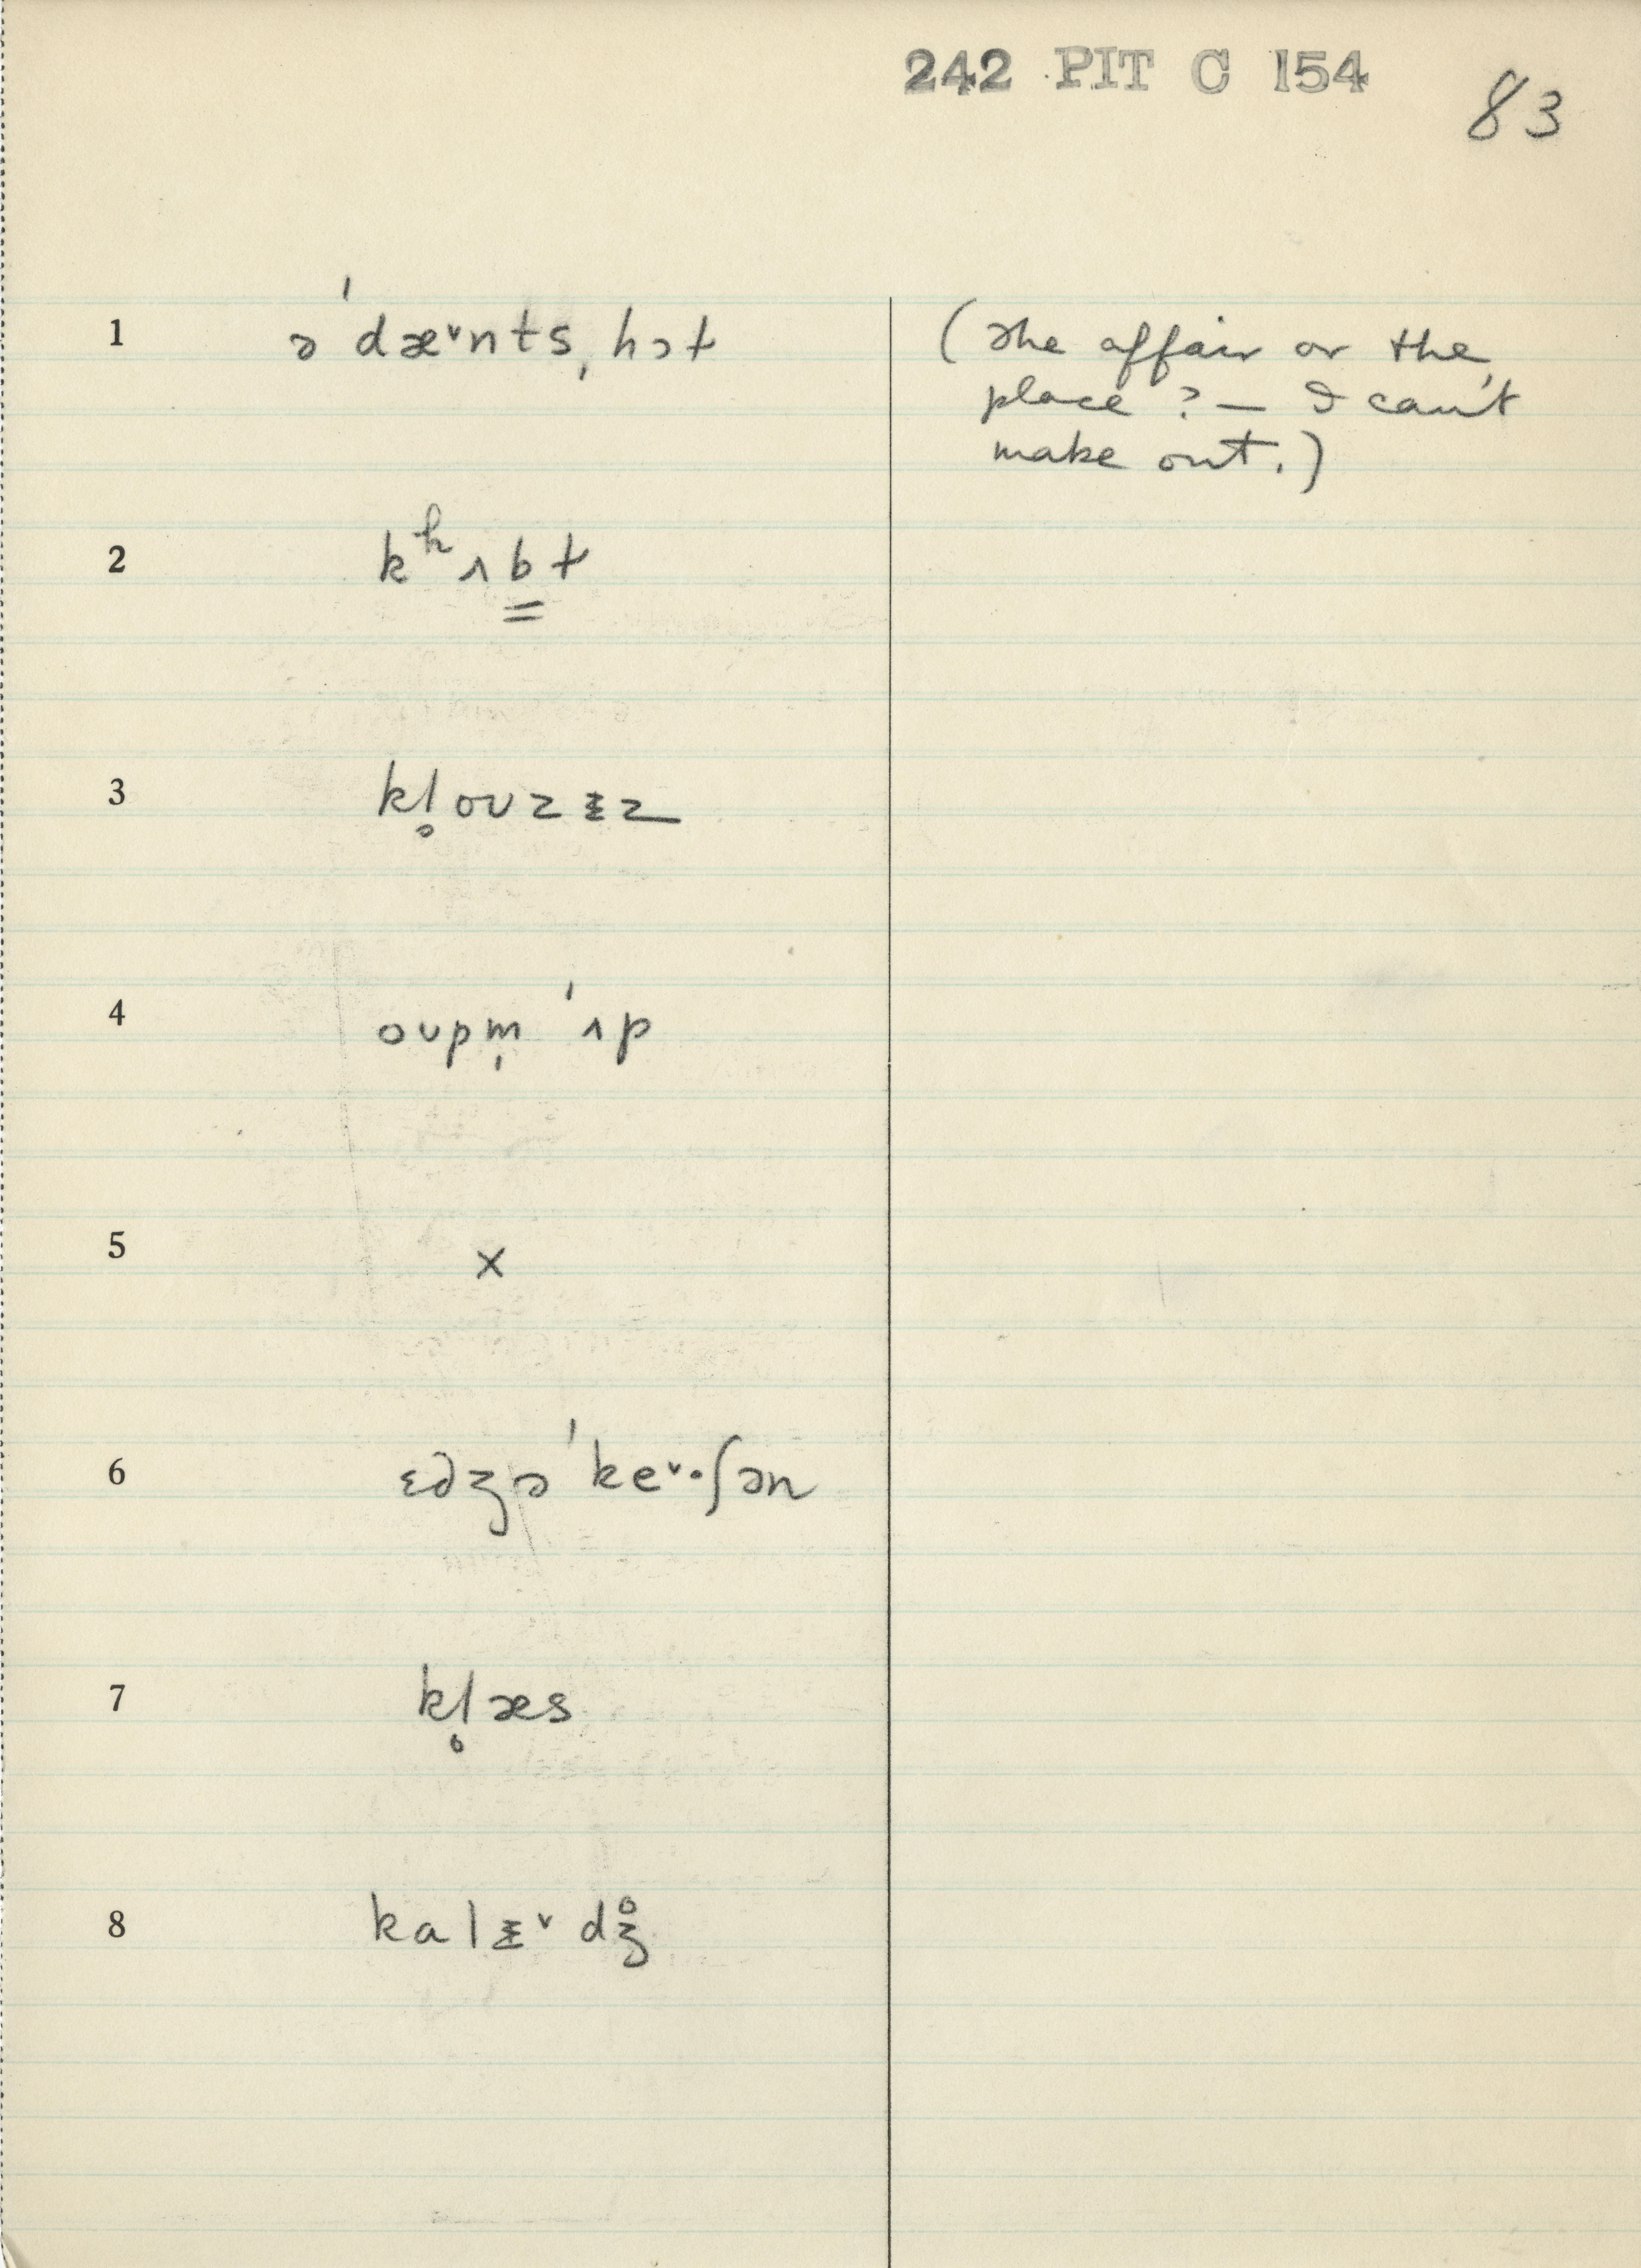 242 PIT C 154
83
1 ə ˈdæᵛntsˌhɔt
(The affair or the
place? — I can't
make out.)
2 kʰʌb̳t
3 kl̥ouzᵻz
4 oupm̩ ˈʌp
5 ×
6 ɛdʒəˈkeᵛ·ʃən
7 kl̥æs
8 kalᵻᵛdʒ̊